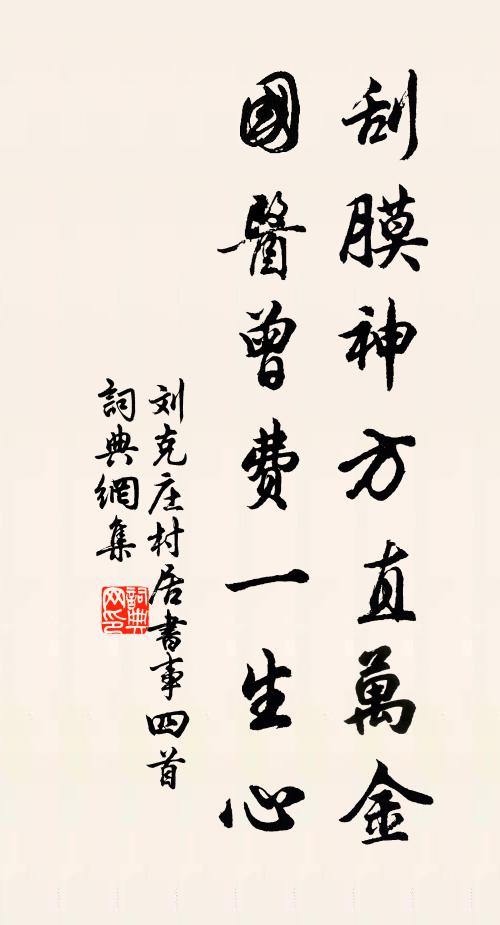 刮膜神方直萬金
國醫曾費一生心
刘克庄村居書事四首
詞典網集
詞典
网印